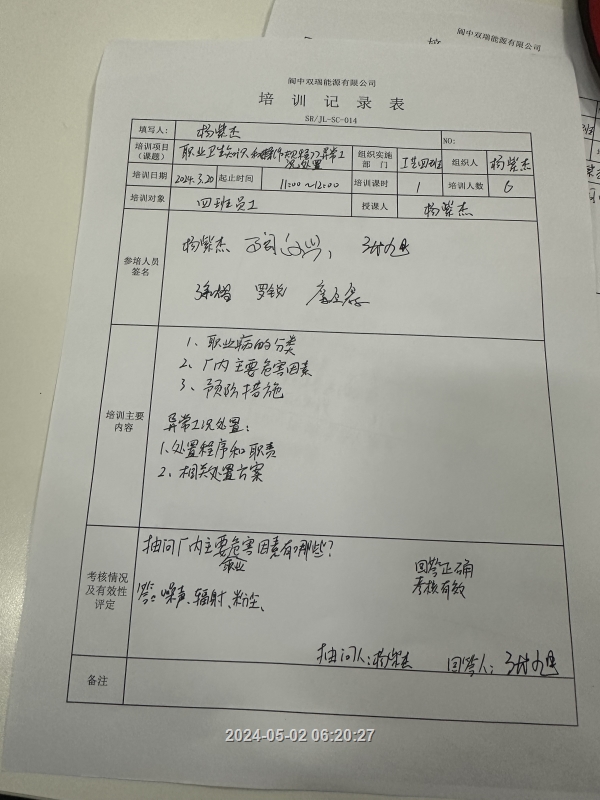 阆中双瑞能源有限公司
阆中双瑞能源有限公司
培训记录表
SR/JL-SC-014
填写人： 杨紫杰 NO:
培训项目（课题） 职业卫生知识和操作规程及异常工况处置 组织实施部门 卫生四班 组织人 杨紫杰
培训日期 2024.3.20 起止时间 11:00～12:00 培训课时 1 培训人数 6
培训对象 四班员工 授课人 杨紫杰
参培人员签名
杨紫杰
罗锐
培训主要内容
1、职业病的分类
2、厂内主要危害因素
3、预防措施
异常工况处置：
1、处置程序和职责
2、相关处置方案
考核情况及有效性评定
抽问厂内主要危害因素有哪些？
职业
答：噪声、辐射、粉尘、
回答正确
考核有效
抽问人：杨紫杰 回答人：
备注
2024-05-02 06:20:27